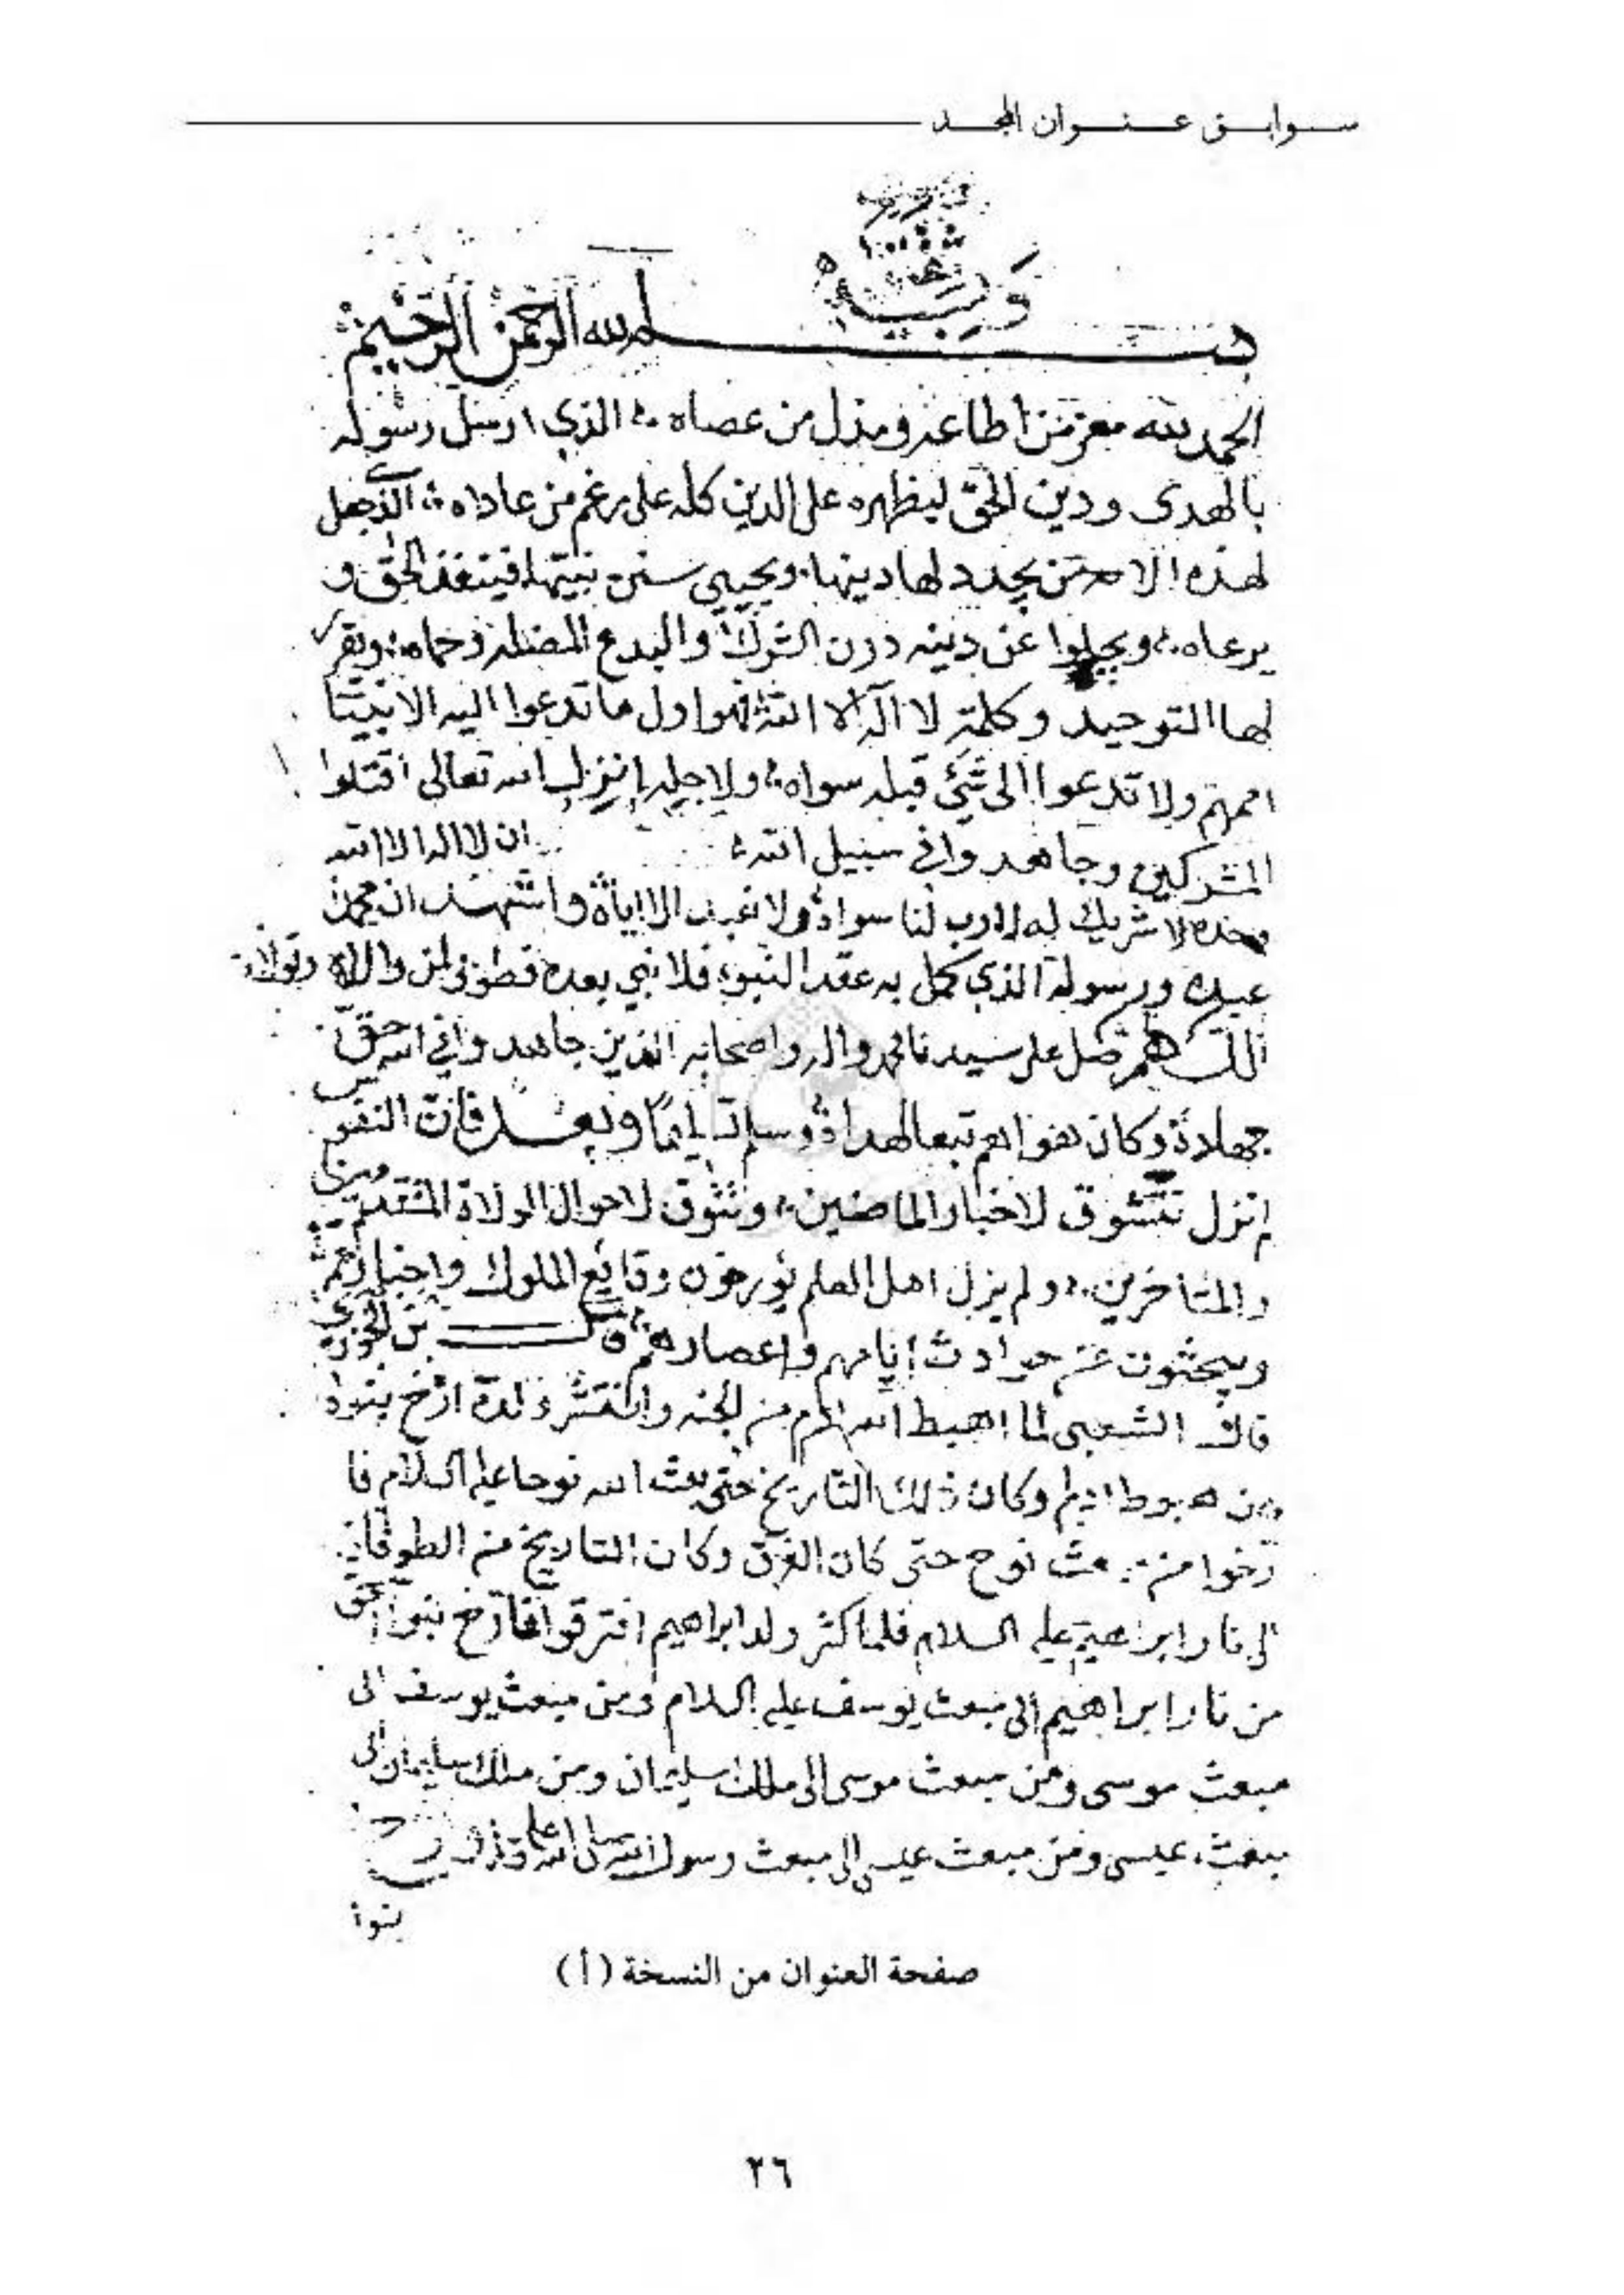 سوابق عنوان المجد
وبه نستعين
بسم الله الرحمن الرحيم
الحمد لله معز من اطاعه ومذل من عصاه الذي ارسل رسوله
بالهدى ودين الحق ليظهره على الدين كله على رغم من عاداه الذي جعل
لهذه الامة من يجدد لها دينها ويحيي سنن نبيها فينفذ الحق و
يرعاه ويجلوا عن دينه درن الشرك والبدع المضلة وحماه ويقرر
لها التوحيد وكلمة لا اله الا الله فهو اول ما تدعوا اليه الانبيا
اممهم ولا تدعوا الى شئ قبله سواه ولاجله انزل الله تعالى اقتلوا
المشركين وجاهدوا في سبيل الله ان لا اله الا الله
وحده لا شريك له لا رب لنا سواه ولا نعبد الا اياه واشهد ان محمدا
عبده ورسوله الذي كمل به عقد النبوة فلا نبي بعده فطوبى لمن والاه وتولاه
اللهم صل على سيدنا محمد واله واصحابه الذين جاهدوا في الله حق
جهاده وكان هواهم تبعا لهداه وسلم تسليما وبعد فان النفوس
لم تزل تتشوق لاخبار الماضين وتتوق لاحوال الولاة المتقدمين
والمتاخرين ولم يزل اهل العلم يؤرخون وقايع الملوك واخبارهم
ويبحثون عن حوادث ايامهم واعصارهم قال بن الجوزي
قال الشعبي لما اهبط الله ادم من الجنه وانتشر ولده ارخ بنوه
من هبوط ادم وكان ذلك التاريخ حتى بعث الله نوحا عليه السلام فا
رخوا من مبعث نوح حتى كان الغرق وكان التاريخ من الطوفان
الى نار ابراهيم عليه السلام فلما كثر ولد ابراهيم افترقوا فارخ بنوا اسحق
من نار ابراهيم الى مبعث يوسف عليه السلام ومن مبعث يوسف الى
مبعث موسى ومن مبعث موسى الى ملك سليمان ومن ملك سليمان الى
مبعث عيسى ومن مبعث عيسى الى مبعث رسول الله صلى الله عليه
بنوا
صفحة العنوان من النسخة (أ)
٢٦